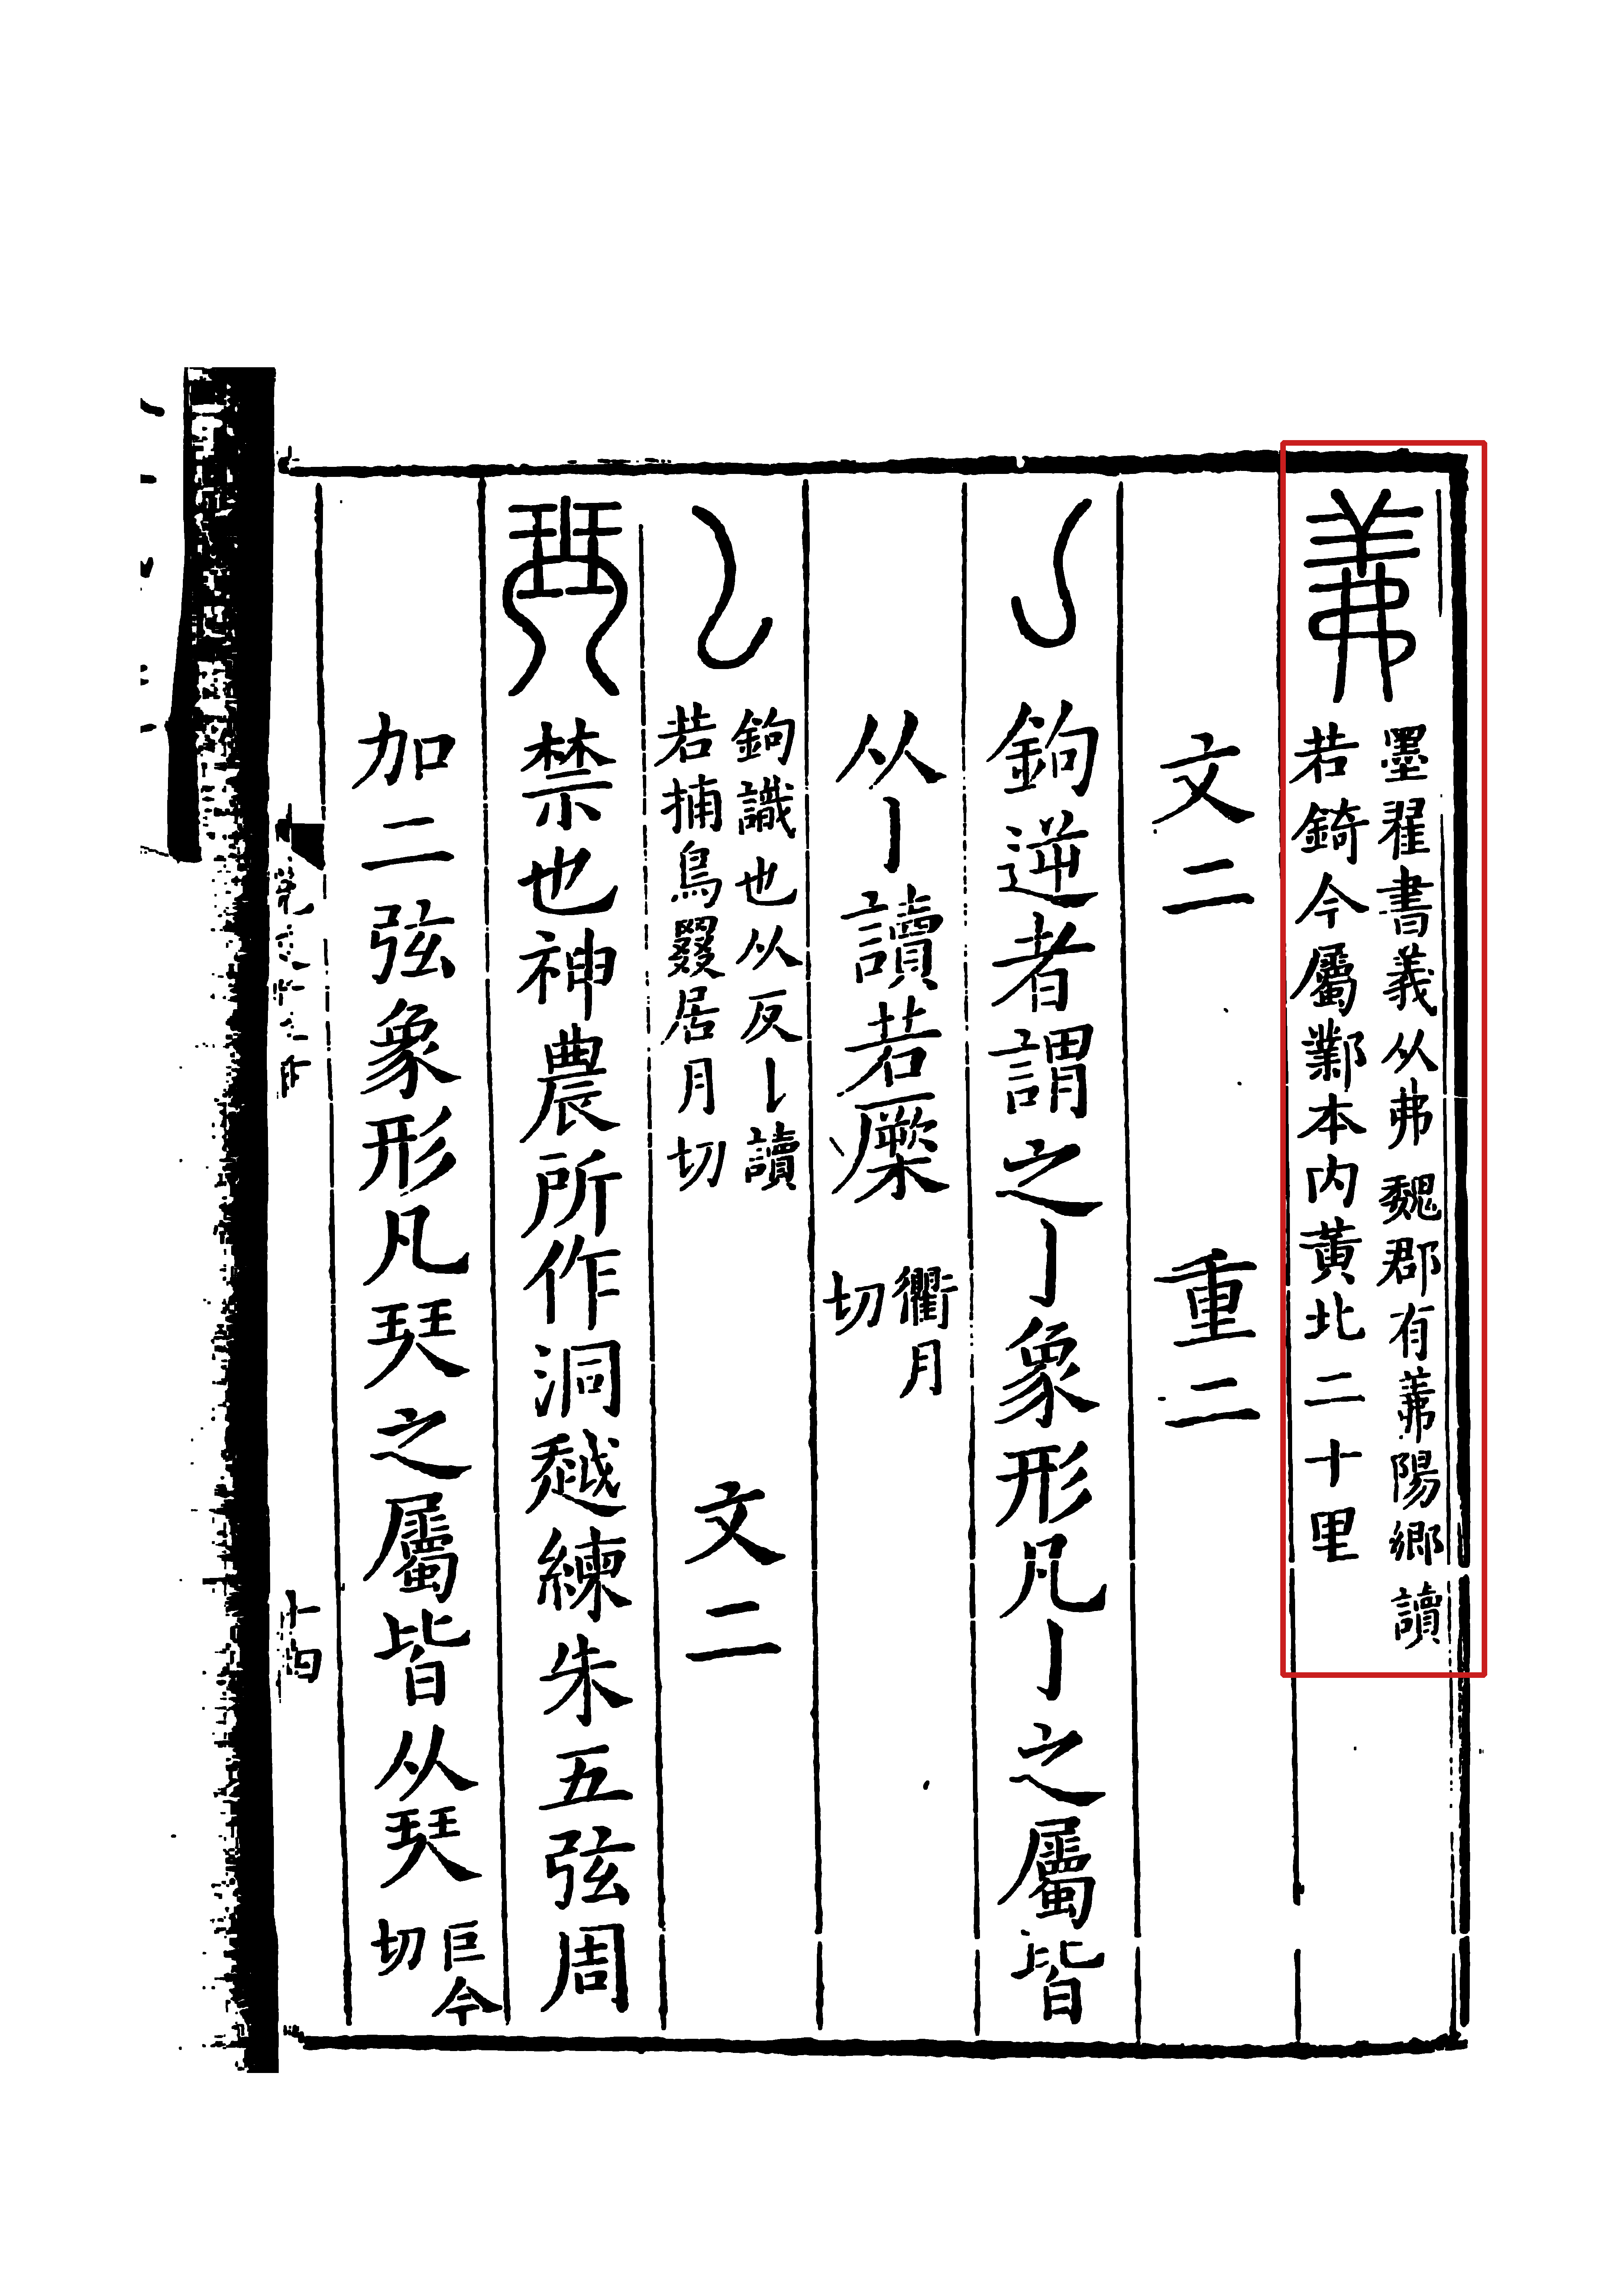 羛墨翟書義从弗魏郡有羛陽鄉讀
若錡今屬鄴本内黃北二十里
文二　重二
𠄌鉤逆者謂之亅象形凡亅之屬皆
从亅讀若橜衢月
切
𠄌鉤識也从反亅讀
若捕鳥罬居月切
文二
珡禁也神農所作洞越練朱五弦周
加二弦象形凡珡之屬皆从珡巨今
切